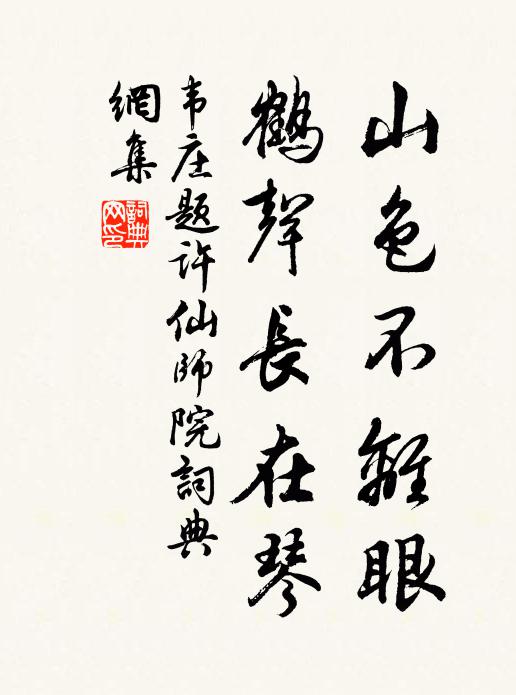 山色不離眼
鶴聲長在琴
韦庄题许仙師院詞典
網集
詞典網印